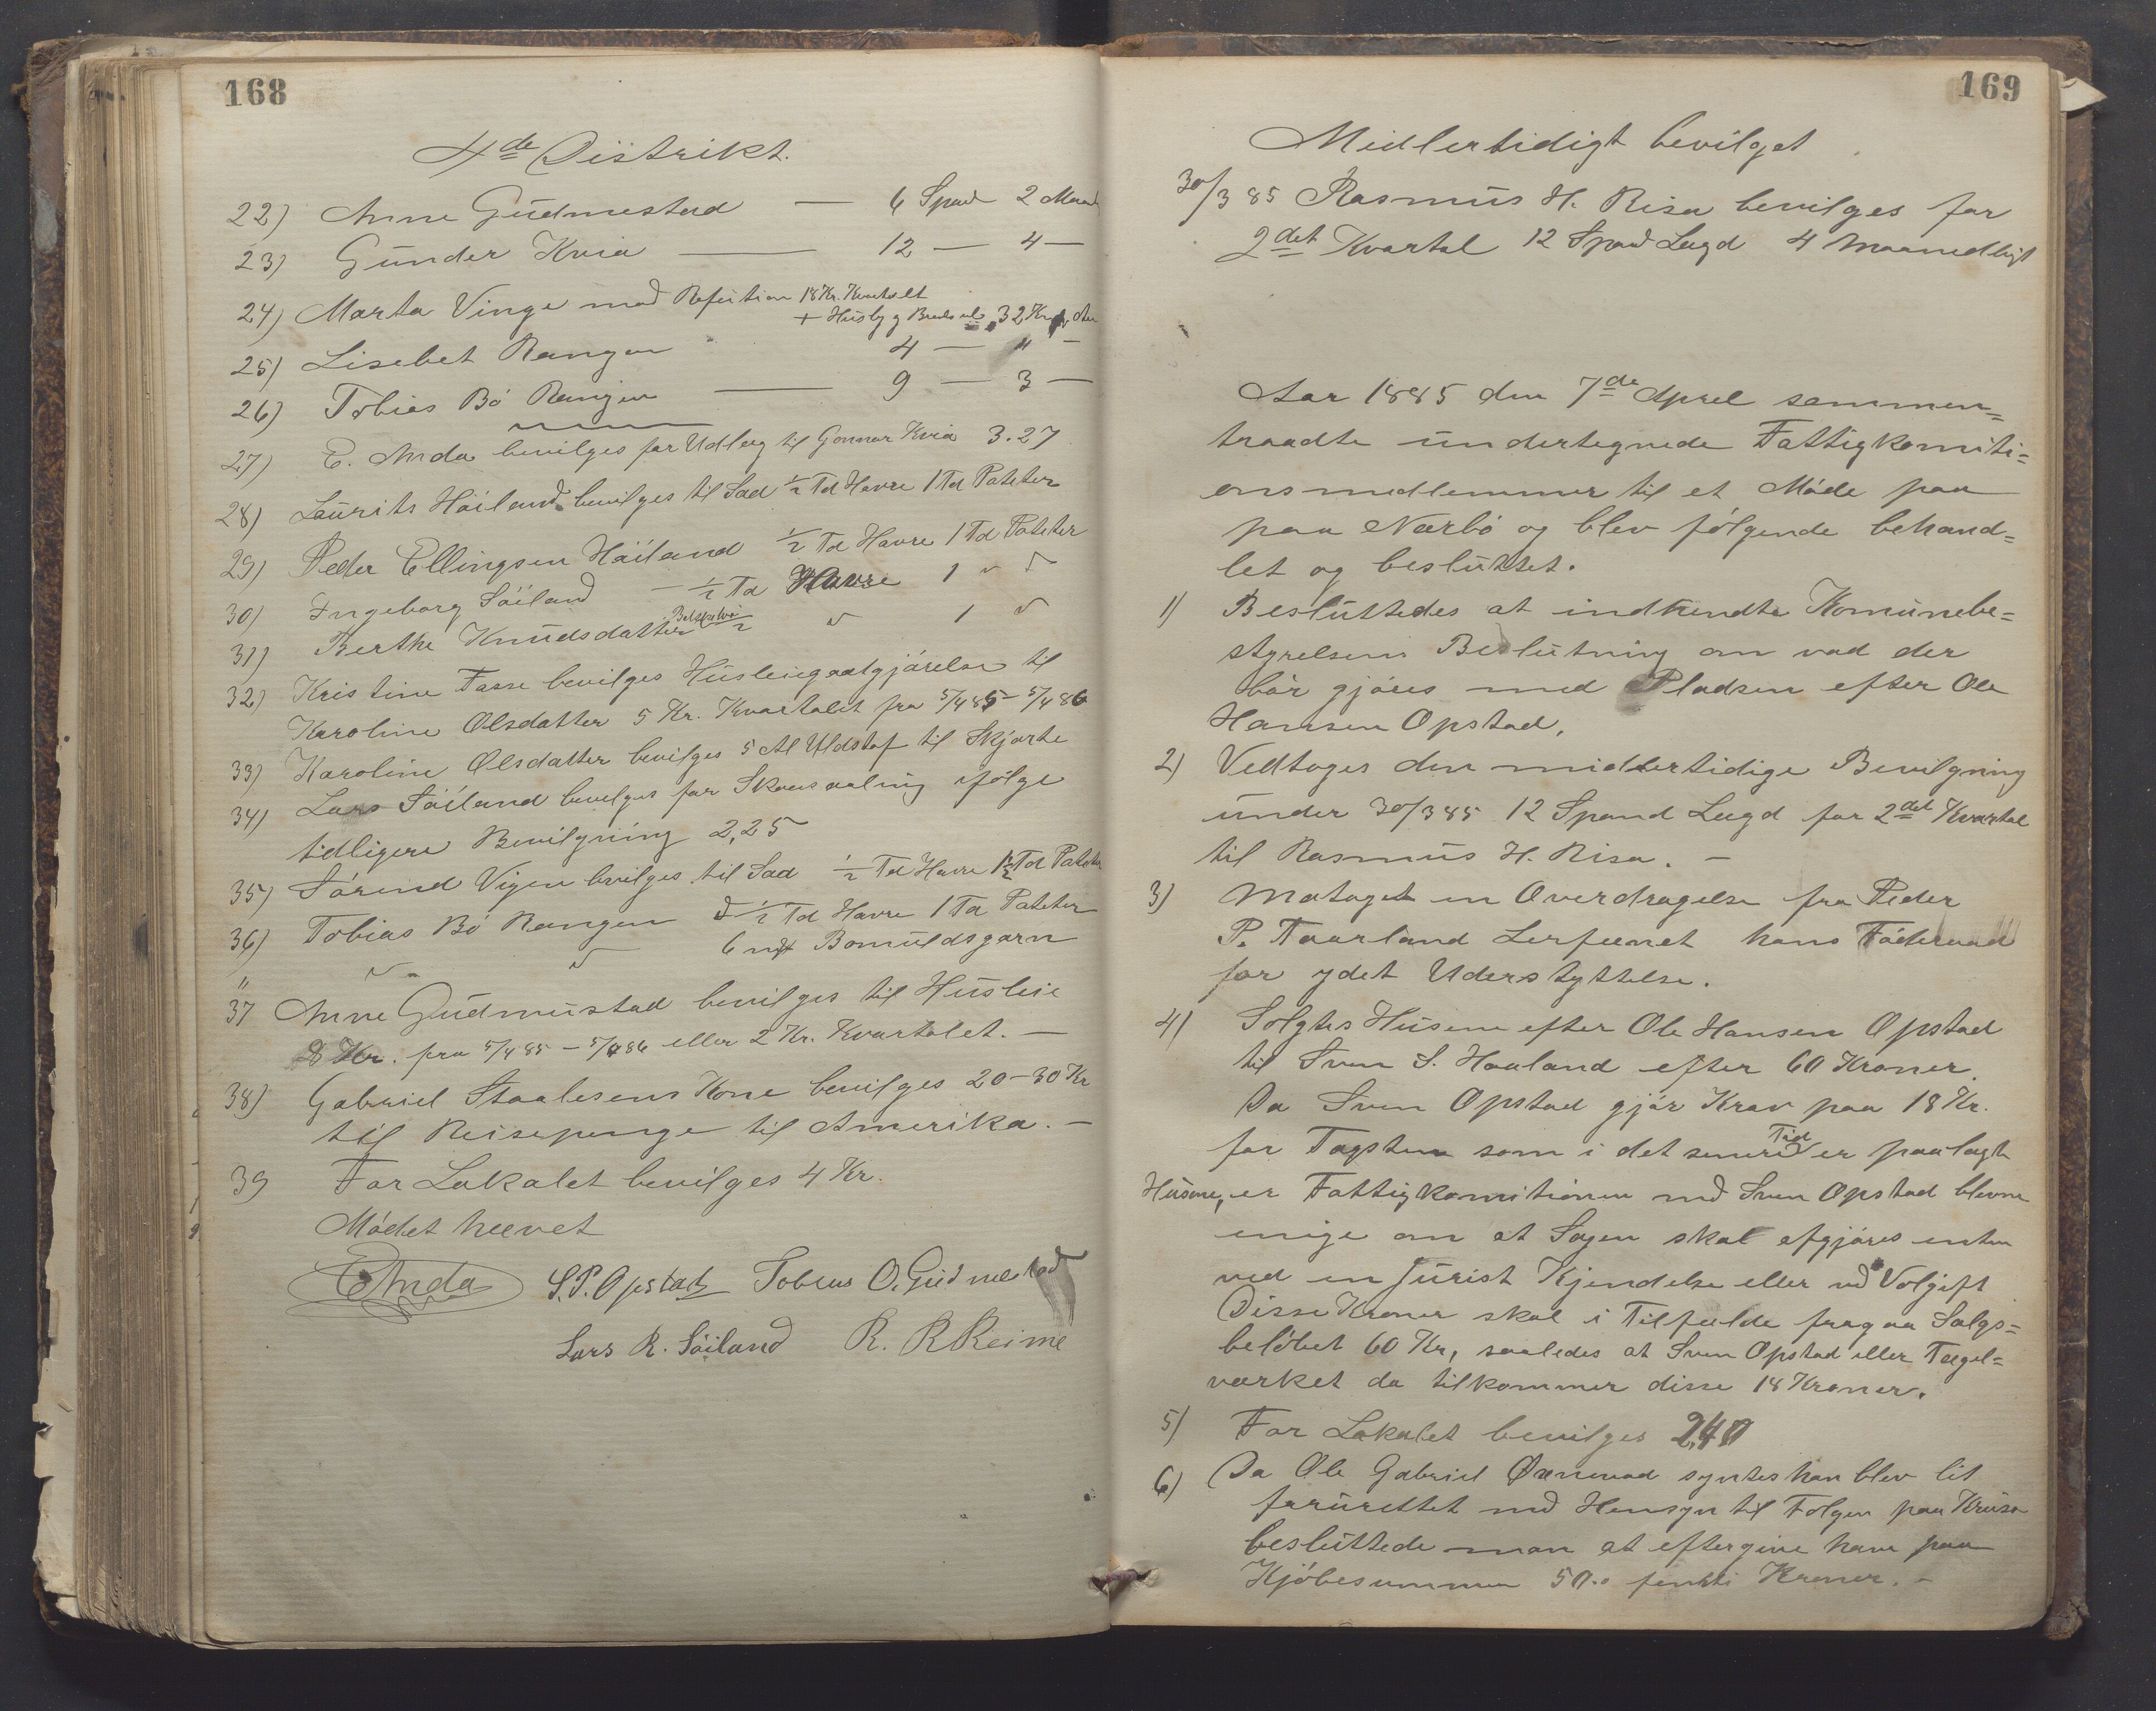 168
4de Distrikt.
22) Anne Gudmestad — 6 Spand 2 Maand
23) Gunder Kvia — 12 — 4 —
24) Marta Vinge mod Refution 18 Kr. Kvartalet
+ Husly g 32 Kr
25) Lisebet Rangen 4 — " —
26) Tobias Bö Rangen — 9 — 3 —
27) E. Anda bevilges for Udlæg til Gonnar Kvia 3.27
28) Laurits Höiland bevilges til Sæd ½ Td Havre 1 Td Poteter
29) Peder Ellingsen Höiland ½ Td Havre 1 Td Poteter
30) Ingeborg Söiland — ½ Td Havre 1 " "
31) Berthe Knudsdatter ½ " 1 "
32) Kristine Fasse bevilges Husleiegodtgjörelse til
Karoline Olsdatter 5 Kr. Kvartalet fra 5/4 85 – 5/4 86
33) Karoline Olsdatter bevilges 5 Al Uldstof til Skjorte
34) Lars Söiland bevilges for Skoesaaling ifölge
tidligere Bevilgning 2,25
35) Sörend Vigen bevilges til Sæd ½ Td Havre 1½ Td Poteter
36) Tobias Bö Rangen d ½ Td Havre 1 Td Poteter
" " " 6 Bomuldsgarn
37 Anne Gudmustad bevilges til Husleie
8 Kr. fra 5/4 85 – 5/4 86 eller 2 Kr. Kvartalet. —
38) Gabriel Staalesens Kone bevilges 20–30 Kr
til Reisepenge til Amerika. —
39 For Lokalet bevilges 4 Kr.
Mödet hævet
E Anda S. P. Opstad Tobias O. Gudmestad
Lars R. Söiland R. R Reime
169
Midlertidigt bevilget
30/3 85 Rasmus H. Risa bevilges for
2det Kvartal 12 Spand Lægd 4 Maanedligt
Aar 1885 den 7de April sammen=
traadte undertegnede Fattigkomiti=
onsmedlemmer til et Möde paa
paa Nærbö og blev fölgende behand=
let og besluttet.
1) Besluttedes at indhendte Komunebe=
styrelsens Beslutning om vad der
bör gjöres med Pladsen efter Ole
Hansen Opstad.
2) Vedtoges den midlertidige Bevilgning
under 30/3 85 12 Spand Lægd for 2det Kvartal
til Rasmus H. Risa. —
3) Motoget en Overdragelse fra Peder
P. Taarland hans Föderaad
for ydet Understyttelse.
4) Solgtes Husene efter Ole Hansen Opstad
til Sven S. Haaland efter 60 Kroner.
Da Sven Opstad gjör Krav paa 18 Kr.
for Tagsten som i det senere Tid er paalagt
Husene, er Fattigkomitionen med Sven Opstad blevne
enige om at Sagen skal afgjöres enten
ved en Jurist Kjendelse eller ved Volgift
Disse Kroner skal i Tilfælde fragaa Salgs=
belöbet 60 Kr, saaledes at Sven Opstad eller Tægel=
værket da tilkommer disse 18 Kroner.
5) For Lokalet bevilges 2,40
6) Da Ole Gabriel syntes han blev lit
forurettet med Hensyn til Folgen paa
besluttede man at eftergive ham paa
Kjöbesummen 50.0 femti Kroner. —